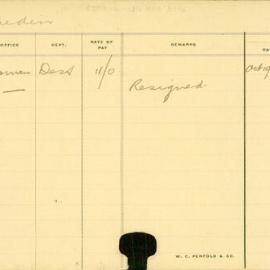 OFFICE DEPT. RATE OF PAY REMARKS
Des 11/0 Resigned Oct 19
W. C. PENFOLD & CO.